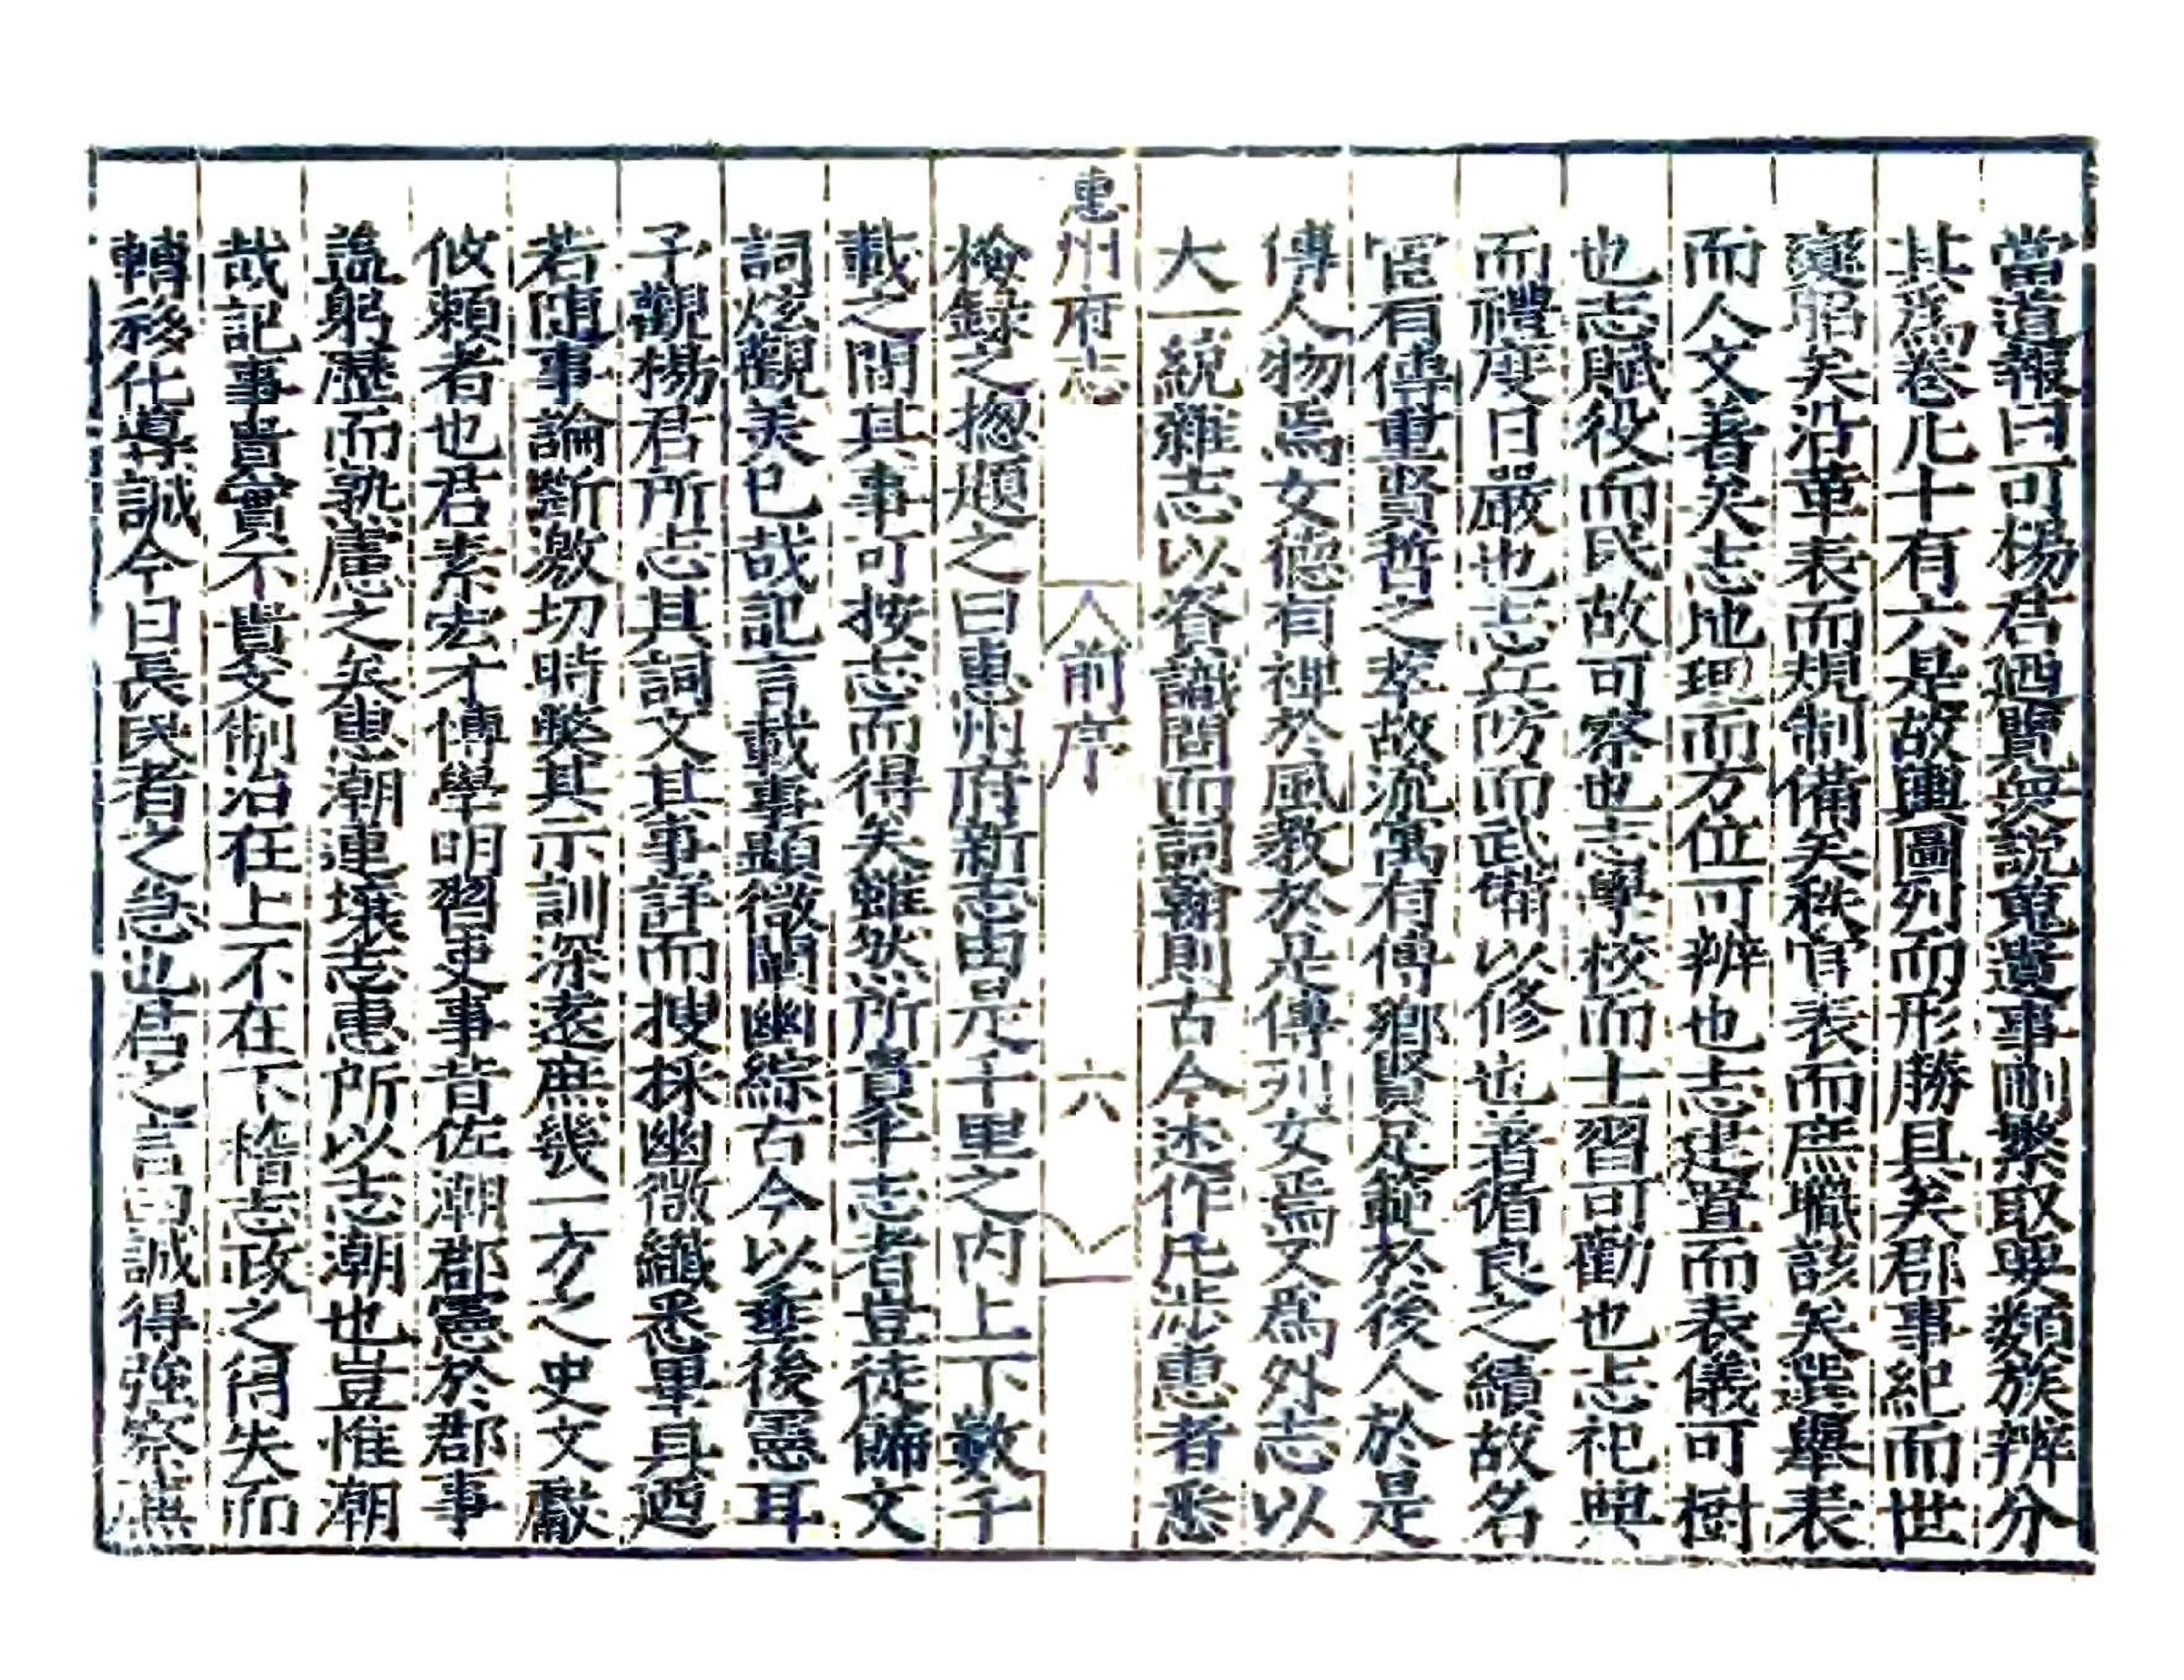 當道報曰可楊君廼覽衆説蒐遺事刪繁取要類族辨分
其爲卷凡十有六是故輿圖列而形勝具矣郡事紀而世
變昭矣沿革表而規制備矣秩官表而庶職該矣選舉表
而人文著矣志地理而方位可辨也志建置而表儀可樹
也志賦役而民故可察也志學校而士習可勸也志祀典
而禮度日嚴也志兵防而武備以修也著循良之績故名
宦有傳重賢哲之孝故流寓有傳鄉賢足範於後人於是
傳人物焉女德有裨於風敎於是傳列女焉又爲外志以
大一統雜志以資識間而詞翰則古今述作凡涉惠者悉
惠州府志 前序 六
檢録之揔題之曰惠州府新志由是千里之内上下數千
載之間其事可按志而得矣雖然所貴乎志者豈徒餙文
詞炫觀美已哉記言載事顯微闡幽綜古今以埀後憲耳
予觀楊君所志其詞文其事詳而搜採幽微纖悉畢具廼
若随事論斷激切時弊其示訓深逺庶幾一方之史文獻
攸賴者也君素宏才博學明習吏事昔佐潮郡憲於郡事
諡躬歷而熟慮之矣惠潮連壤志惠所以志潮也豈惟潮
哉記事貴實不貴文制治在上不在下稽志政之得失而
轉移化導誠今日長民者之急也君之言曰誠得強察